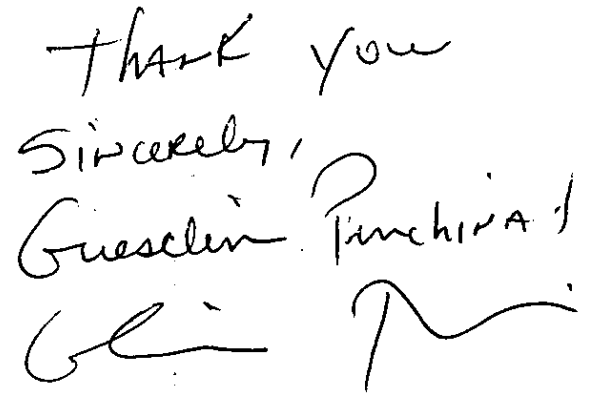 Thank you
Sincerely,
Guesclin Pinchinat